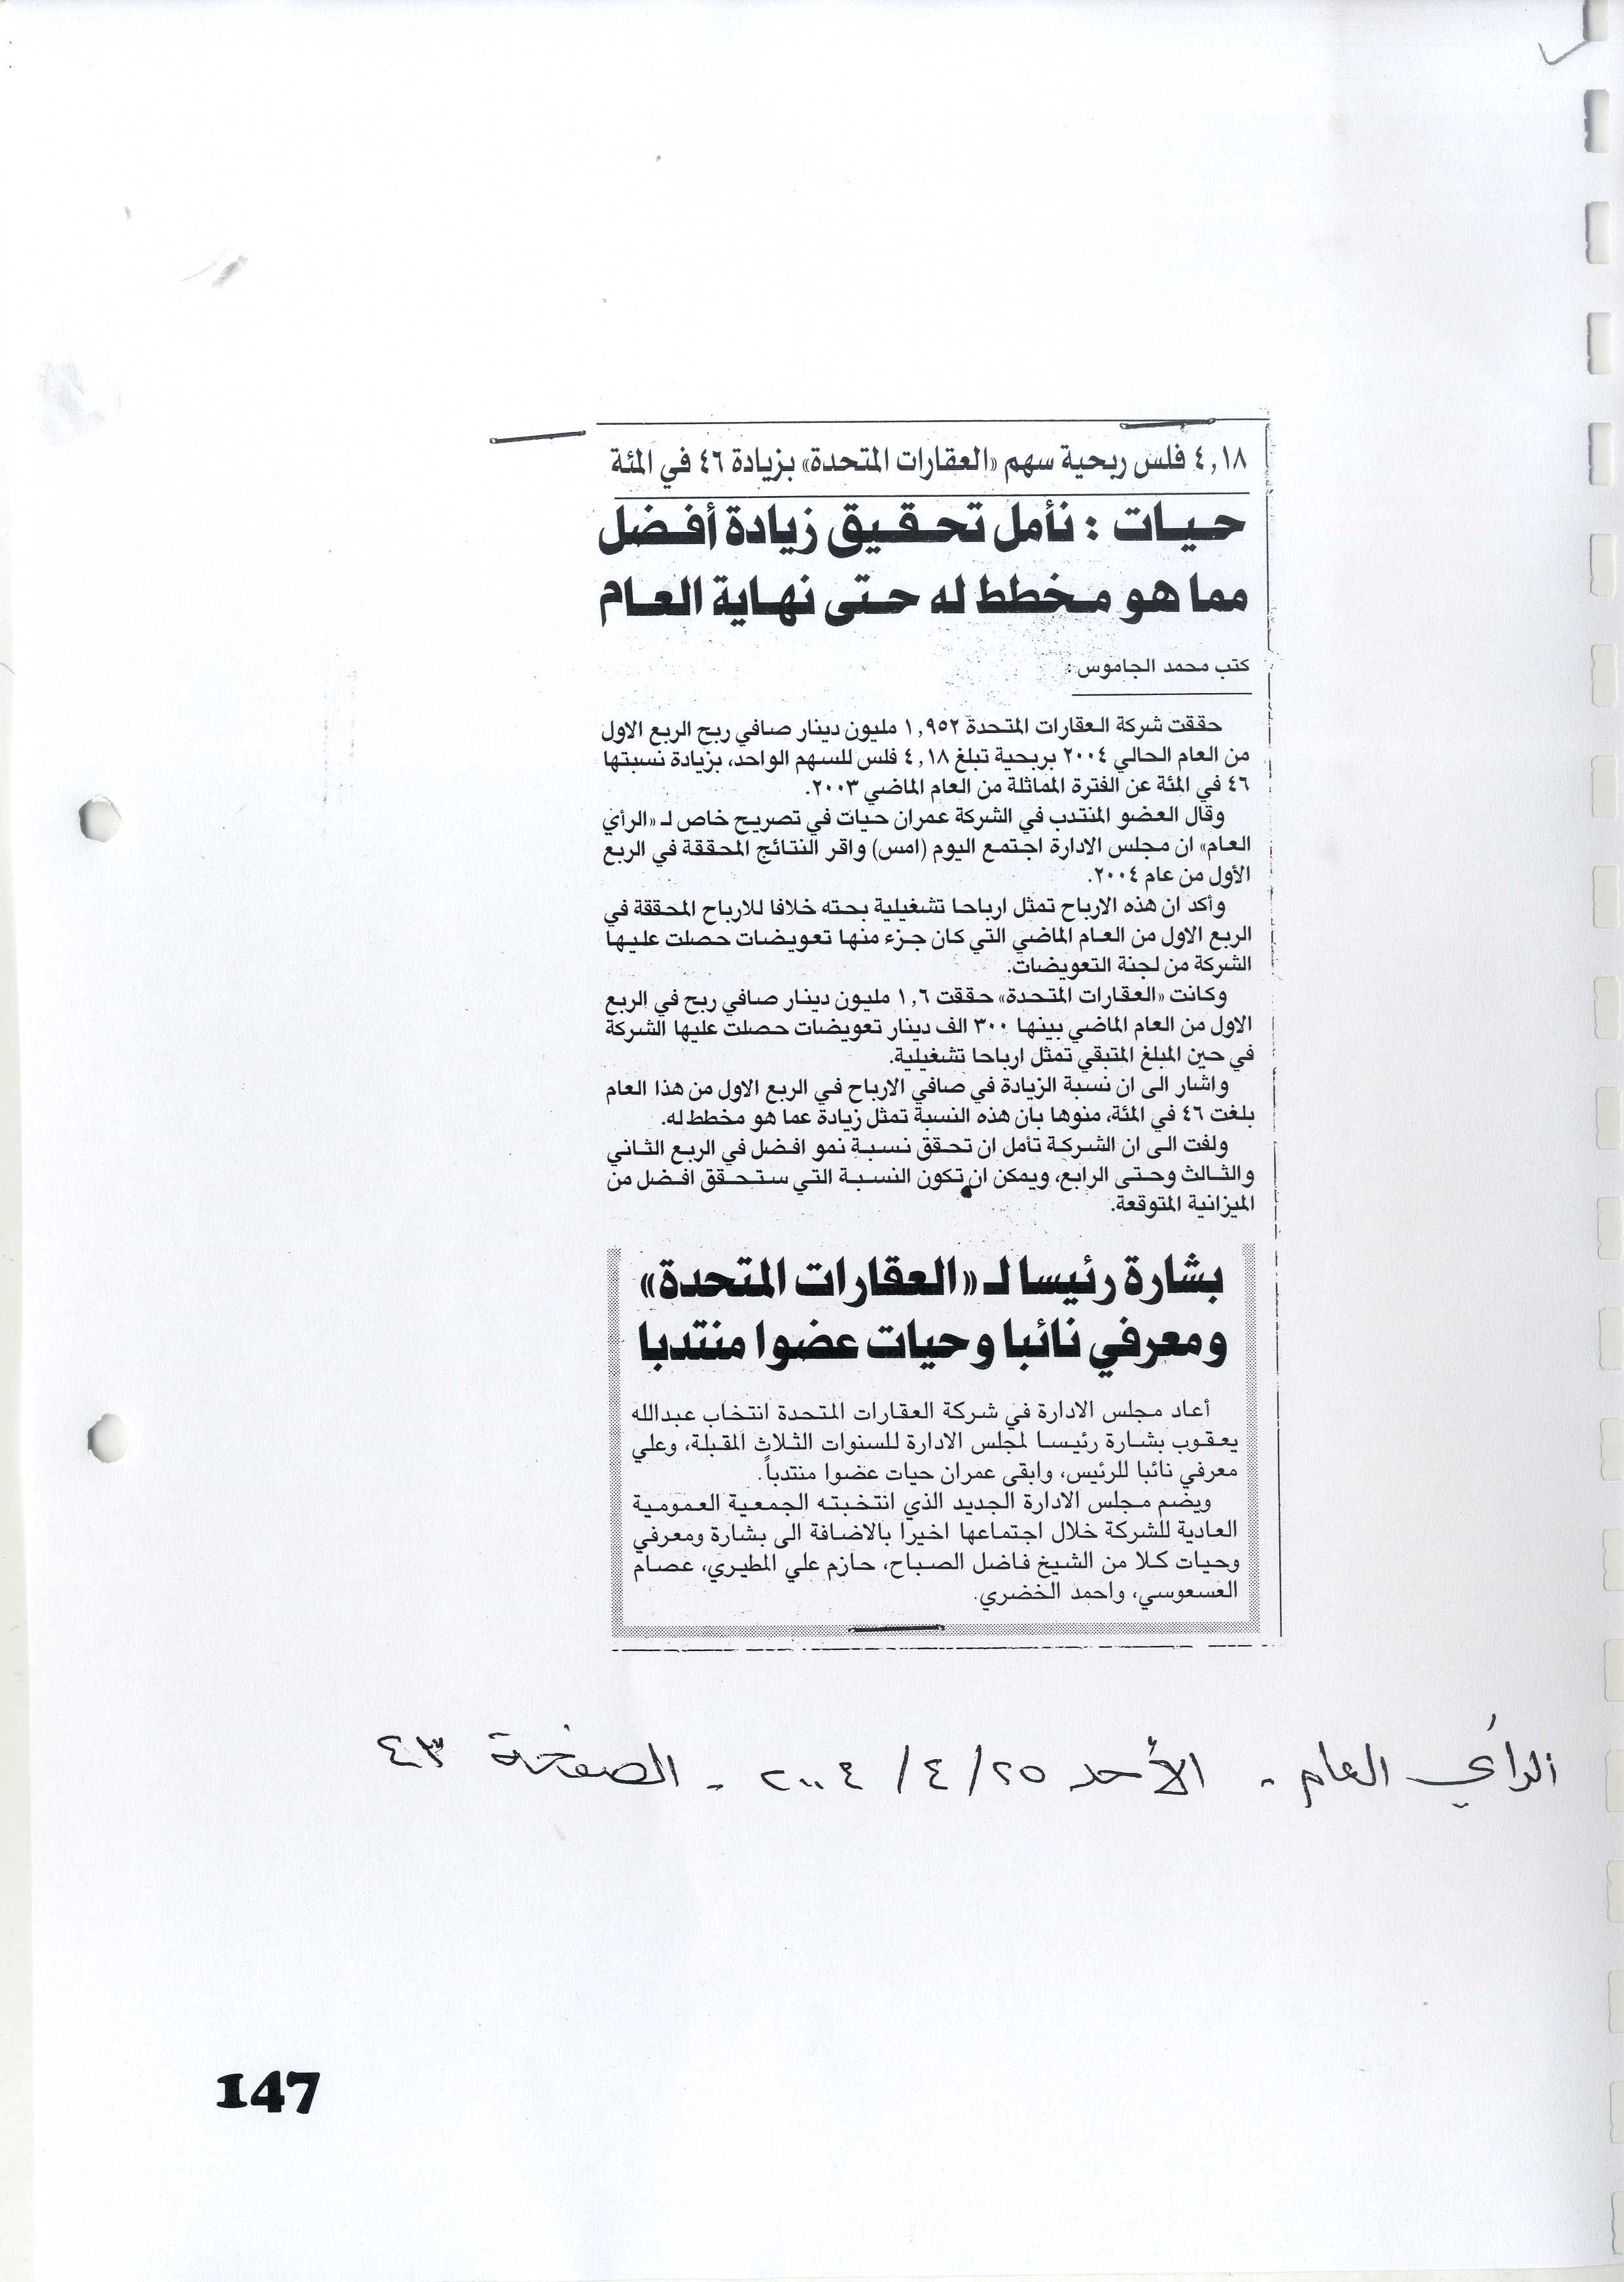 ٤,١٨ فلس ربحية سهم «العقارات المتحدة» بزيادة ٤٦ في المئة
حيات : نأمل تحقيق زيادة أفضل
مما هو مخطط له حتى نهاية العام
كتب محمد الجاموس:
حققت شركة العقارات المتحدة ١,٩٥٢ مليون دينار صافي ربح الربع الاول
من العام الحالي ٢٠٠٤ بربحية تبلغ ٤,١٨ فلس للسهم الواحد، بزيادة نسبتها
٤٦ في المئة عن الفترة المماثلة من العام الماضي ٢٠٠٣.
وقال العضو المنتدب في الشركة عمران حيات في تصريح خاص لـ «الرأي
العام» ان مجلس الادارة اجتمع اليوم (امس) واقر النتائج المحققة في الربع
الأول من عام ٢٠٠٤.
وأكد ان هذه الارباح تمثل ارباحا تشغيلية بحته خلافا للارباح المحققة في
الربع الاول من العام الماضي التي كان جزء منها تعويضات حصلت عليها
الشركة من لجنة التعويضات.
وكانت «العقارات المتحدة» حققت ١,٦ مليون دينار صافي ربح في الربع
الاول من العام الماضي بينها ٣٠٠ الف دينار تعويضات حصلت عليها الشركة
في حين المبلغ المتبقي تمثل ارباحا تشغيلية.
واشار الى ان نسبة الزيادة في صافي الارباح في الربع الاول من هذا العام
بلغت ٤٦ في المئة، منوها بأن هذه النسبة تمثل زيادة عما هو مخطط له.
ولفت الى ان الشركة تأمل ان تحقق نسبة نمو افضل في الربع الثاني
والثالث وحتى الرابع، ويمكن ان تكون النسبة التي ستحقق افضل من
الميزانية المتوقعة.
بشارة رئيسا لـ «العقارات المتحدة»
ومعرفي نائبا وحيات عضوا منتدبا
أعاد مجلس الادارة في شركة العقارات المتحدة انتخاب عبدالله
يعقوب بشارة رئيسا لمجلس الادارة للسنوات الثلاث المقبلة، وعلي
معرفي نائبا للرئيس، وابقى عمران حيات عضوا منتدباً.
ويضم مجلس الادارة الجديد الذي انتخبته الجمعية العمومية
العادية للشركة خلال اجتماعها اخيرا بالاضافة الى بشارة ومعرفي
وحيات كلا من الشيخ فاضل الصباح، حازم علي المطيري، عصام
العسعوسي، واحمد الخضري.
الرأي العام - الأحد ٢٥/٤/٢٠٠٤ - الصفحة ٤٣
147